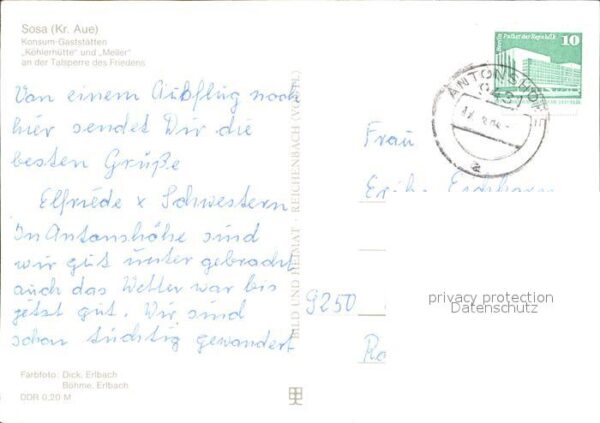 Sosa (Kr. Aue)
Konsum-Gaststätten
„Köhlerhütte" und „Meiler"
an der Talsperre des Friedens
Von einem Ausflug nach
hier sendet Dir die
besten Grüße
Elfriede x Schwestern
In Antonshöhe sind
wir gut unter gebracht
auch das Wetter war bis
jetzt gut. Wir sind
schon tüchtig gewandert
Farbfoto: Dick, Erlbach
Böhme, Erlbach
DDR 0,20 M
BILD UND HEIMAT · REICHENBACH (VOGTL)
Berlin Palast der Republik
10
ANTONSHÖHE
Frau
9250
privacy protection
Datenschutz